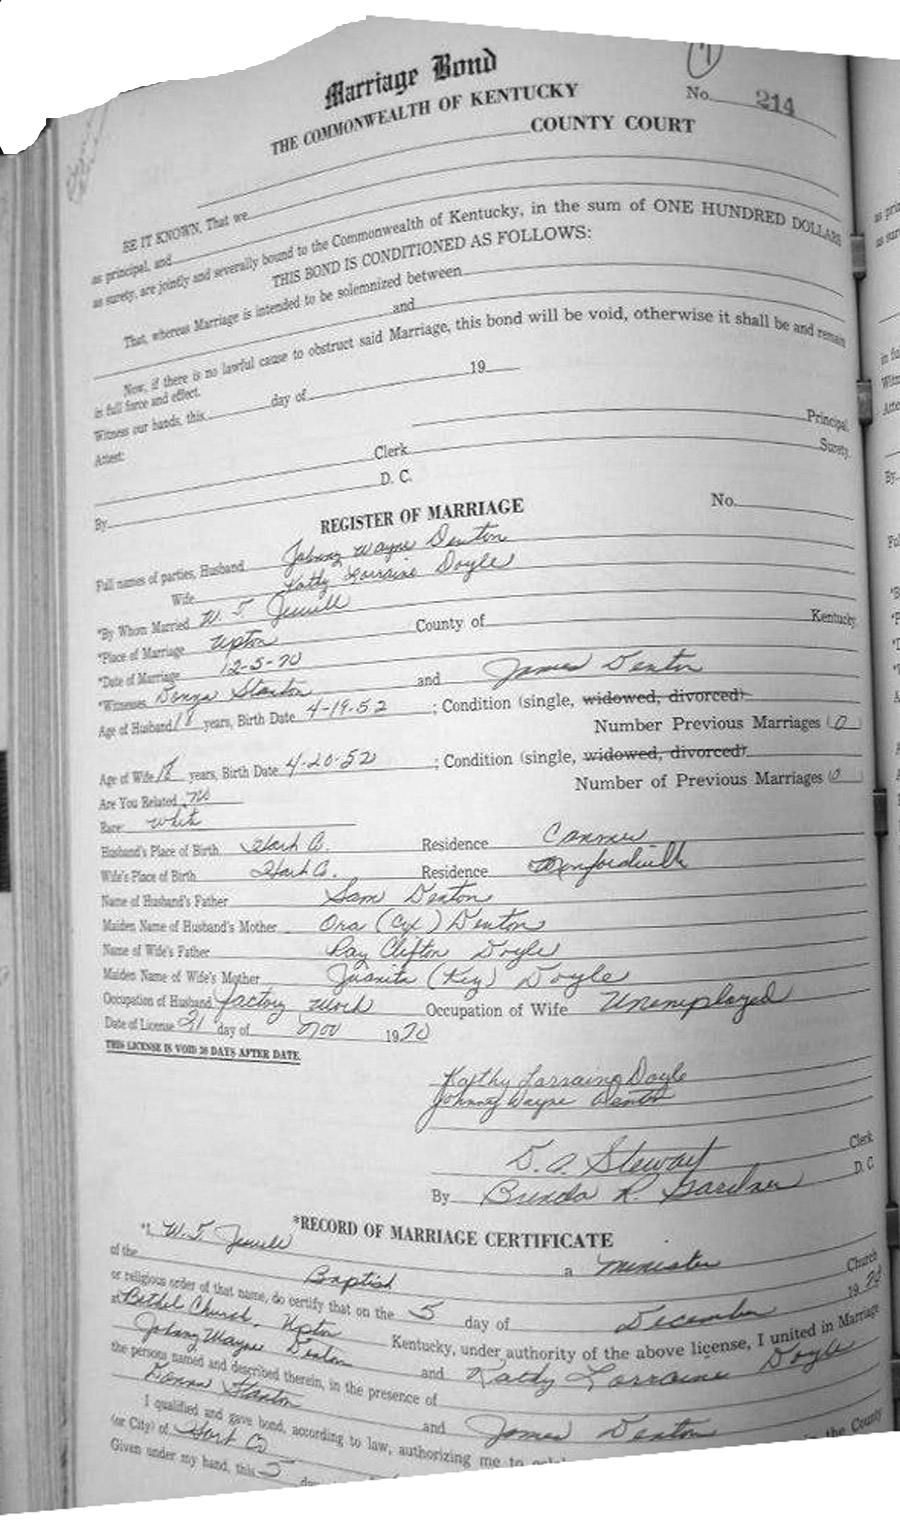 Marriage Bond
No. 214
THE COMMONWEALTH OF KENTUCKY
COUNTY COURT
BE IT KNOWN, That we
as principal, and
as surety, are jointly and severally bound to the Commonwealth of Kentucky, in the sum of ONE HUNDRED DOLLARS
THIS BOND IS CONDITIONED AS FOLLOWS:
That, whereas Marriage is intended to be solemnized between
and
Now, if there is no lawful cause to obstruct said Marriage, this bond will be void, otherwise it shall be and remain
in full force and effect.
Witness our hands, this day of 19
Principal.
Attest: Clerk Surety.
By D. C.
REGISTER OF MARRIAGE No.
Full names of parties, Husband Johnny Wayne Denton
Wife Kathy Lorraine Doyle
*By Whom Married W. T. Jewell
*Place of Marriage Upton County of Kentucky
*Date of Marriage 12-5-70
*Witnesses Stanton and James Denton
Age of Husband 18 years, Birth Date 4-19-52 ; Condition (single, widowed, divorced)
Number Previous Marriages (0)
Age of Wife 18 years, Birth Date 4-20-52 ; Condition (single, widowed, divorced)
Number of Previous Marriages (0)
Are You Related no
Race: white
Husband's Place of Birth Hart Co. Residence Canmer
Wife's Place of Birth Hart Co. Residence Munfordville
Name of Husband's Father Sam Denton
Maiden Name of Husband's Mother Ora ( ) Denton
Name of Wife's Father Ray Clifton Doyle
Maiden Name of Wife's Mother Juanita (Key) Doyle
Occupation of Husband factory work Occupation of Wife Unemployed
Date of License 21 day of Nov 1970
THIS LICENSE IS VOID 30 DAYS AFTER DATE.
Kathy Lorraine Doyle
Johnny Wayne Denton
D. A. Stewart Clerk
By Brenda R. Gardner D. C.
*RECORD OF MARRIAGE CERTIFICATE
*I, W. T. Jewell a minister
of the Baptist Church
or religious order of that name, do certify that on the 5 day of December 1970
at Bethel Church, Upton Kentucky, under authority of the above license, I united in Marriage
Johnny Wayne Denton and Kathy Lorraine Doyle
the persons named and described therein, in the presence of
Stanton and James Denton
I qualified and gave bond, according to law, authorizing me to in the County
(or City) of Hart Co
Given under my hand, this 5 day